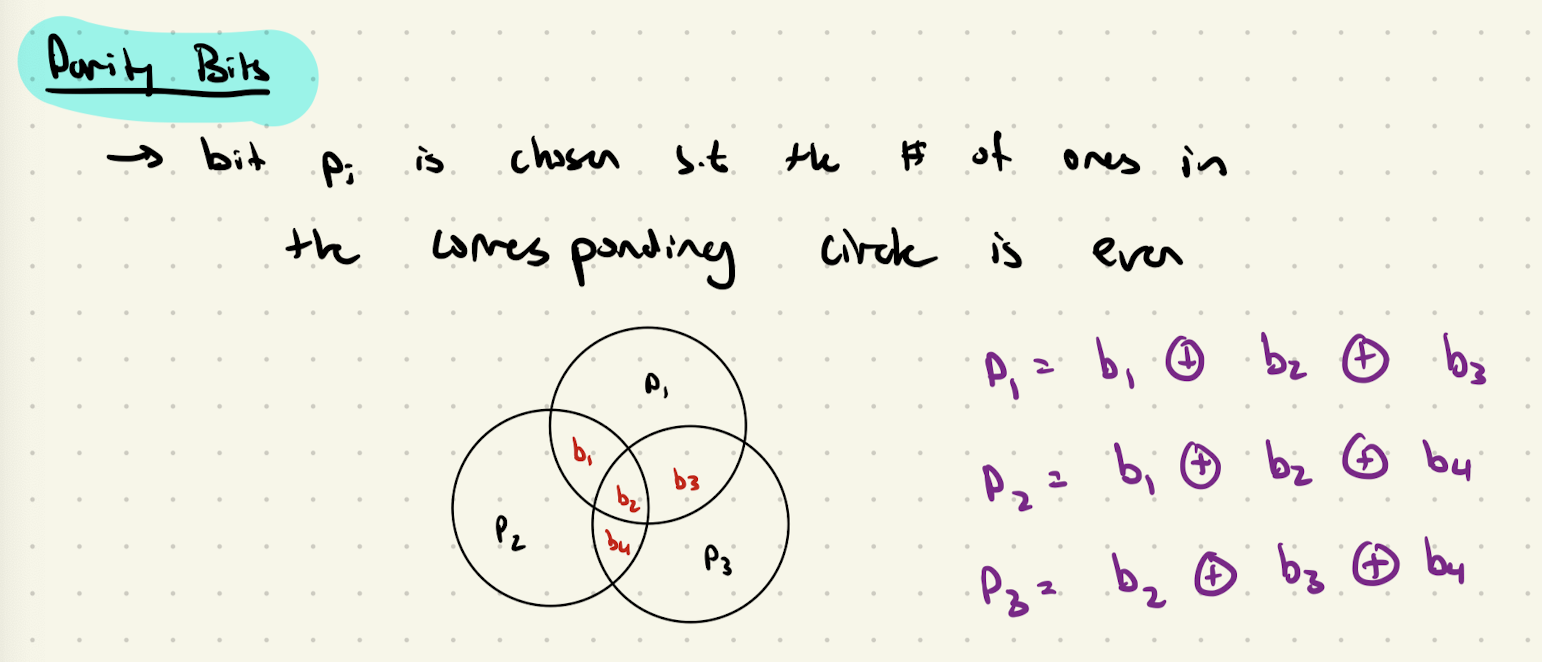 Parity Bits
→ bit pᵢ is chosen s.t the # of ones in
the corresponding circle is even
p₁
b₁
b₃
b₂
p₂
b₄
p₃
p₁ = b₁ ⊕ b₂ ⊕ b₃
p₂ = b₁ ⊕ b₂ ⊕ b₄
p₃ = b₂ ⊕ b₃ ⊕ b₄